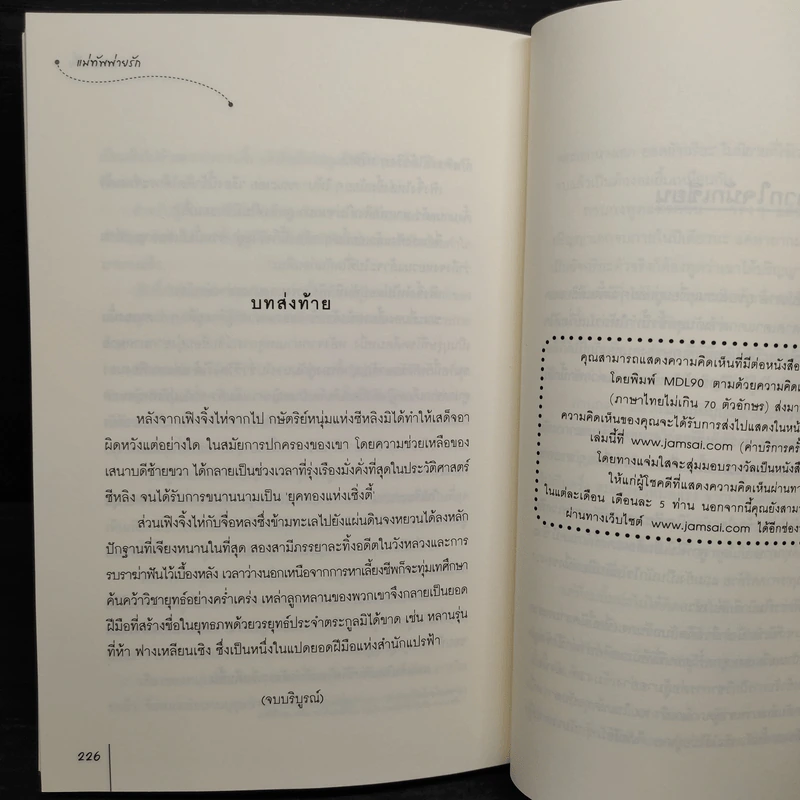 แม่ทัพพ่ายรัก
บทส่งท้าย
หลังจากเฟิงจิ้งไห่จากไป กษัตริย์หนุ่มแห่งซีหลิงมิได้ทำให้เสด็จอา
ผิดหวังแต่อย่างใด ในสมัยการปกครองของเขา โดยความช่วยเหลือของ
เสนาบดีซ้ายขวา ได้กลายเป็นช่วงเวลาที่รุ่งเรืองมั่งคั่งที่สุดในประวัติศาสตร์
ซีหลิง จนได้รับการขนานนามเป็น 'ยุคทองแห่งเซิ่งตี้'
ส่วนเฟิงจิ้งไห่กับจื่อหลงซึ่งข้ามทะเลไปยังแผ่นดินจงหยวนได้ลงหลัก
ปักฐานที่เจียงหนานในที่สุด สองสามีภรรยาละทิ้งอดีตในวังหลวงและการ
รบราฆ่าฟันไว้เบื้องหลัง เวลาว่างนอกเหนือจากการหาเลี้ยงชีพก็จะทุ่มเทศึกษา
ค้นคว้าวิชายุทธ์อย่างคร่ำเคร่ง เหล่าลูกหลานของพวกเขาจึงกลายเป็นยอด
ฝีมือที่สร้างชื่อในยุทธภพด้วยวรยุทธ์ประจำตระกูลมิได้ขาด เช่น หลานรุ่น
ที่ห้า ฟางเหลียนเชิง ซึ่งเป็นหนึ่งในแปดยอดฝีมือแห่งสำนักแปรฟ้า
(จบบริบูรณ์)
226
คุณสามารถแสดงความคิดเห็นที่มีต่อหนังสือ
โดยพิมพ์ MDL90 ตามด้วยความคิดเ
(ภาษาไทยไม่เกิน 70 ตัวอักษร) ส่งมา
ความคิดเห็นของคุณจะได้รับการส่งไปแสดงในหน้
เล่มนี้ที่ www.jamsai.com (ค่าบริการครั้
โดยทางแจ่มใสจะสุ่มมอบรางวัลเป็นหนังสื
ให้แก่ผู้โชคดีที่แสดงความคิดเห็นผ่านทา
ในแต่ละเดือน เดือนละ 5 ท่าน นอกจากนี้คุณยังสามา
ผ่านทางเว็บไซต์ www.jamsai.com ได้อีกช่อง